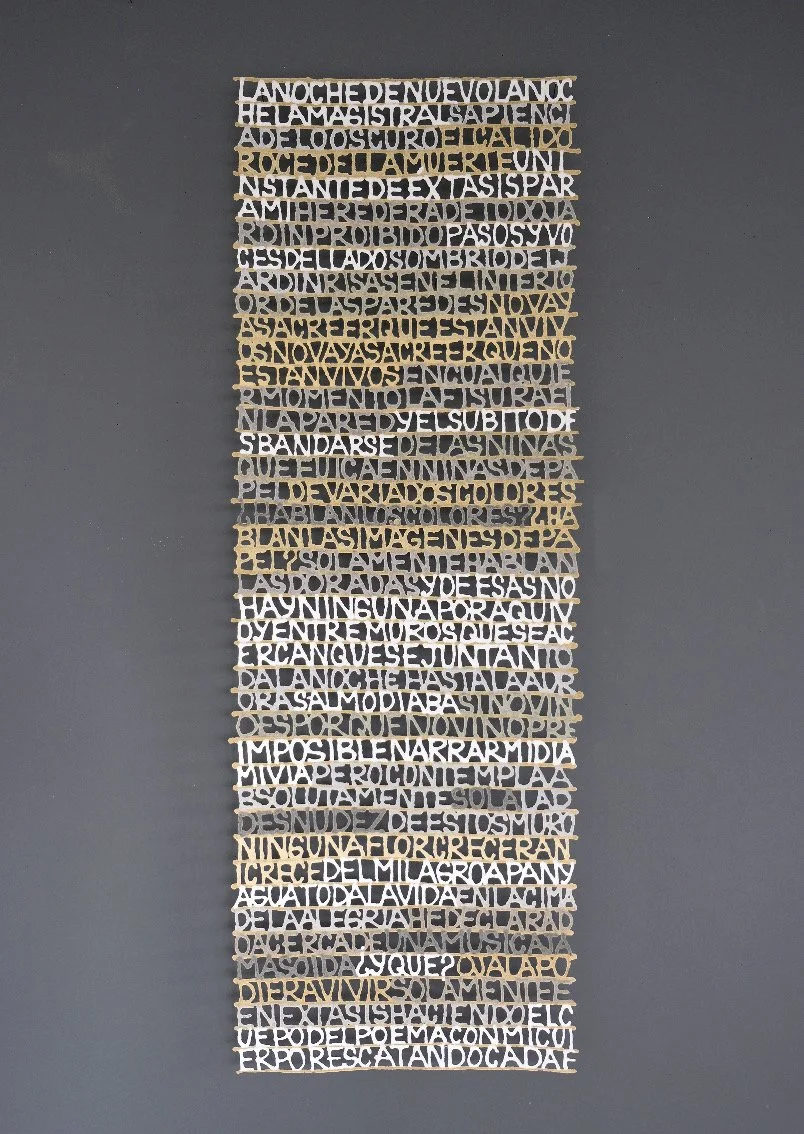 LANOCHEDENUEVOLANOC
HELAMAGISTRALSAPIENCI
ADELOOSCUROELCALIDO
ROCEDELLAMUERTEUNI
NSTANTEDEEXTASISPAR
AMIHEREDERADETODOJA
RDINPROIBIDOPASOSYVO
CESDELLADOSOMBRIODELJ
ARDINRISASENELINTERIO
ORDELASPAREDESNOVAY
ASACREERQUEESTANVIV
OSNOVAYASACREERQUENO
ESTANVIVOSENCUALQUIE
RMOMENTOLAFISURAE
NLAPAREDYELSUBITODE
SBANDARSEDELASNINAS
QUEFUICAENNINASDEPA
PELDEVARIADOSCOLORES
¿HABLANLOSCOLORES?¿HA
BLANLASIMAGENESDEPA
PEL?SOLAMENTEHABLAN
LASDORADASYDEESASNO
HAYNINGUNAPORAQUIV
OYENTREMUROSQUESEAC
ERCANQUESEJUNTANTO
DALANOCHEHASTALAAUR
ORASALMODIABASINOVIN
OESPORQUENOVINOPRE
IMPOSIBLENARRARMIDIA
MIVIAPEROCONTEMPLAA
BSOLUTAMENTESOLALAD
DESNUDEZDEESTOSMURO
NINGUNAFLORCRECERAN
ICRECEDELMILAGROAPANY
AGUATODALAVIDAENLACIMA
DELAALEGRIAHEDECLARAD
OACERCADEUNAMUSICAJA
MASOIDA¿YQUE?OJALAPO
DIERAVIVIRSOLAMENTEE
ENEXTASISHACIENDOELC
UEPODELPOEMACONMICU
ERPORESCATANDOCADAF